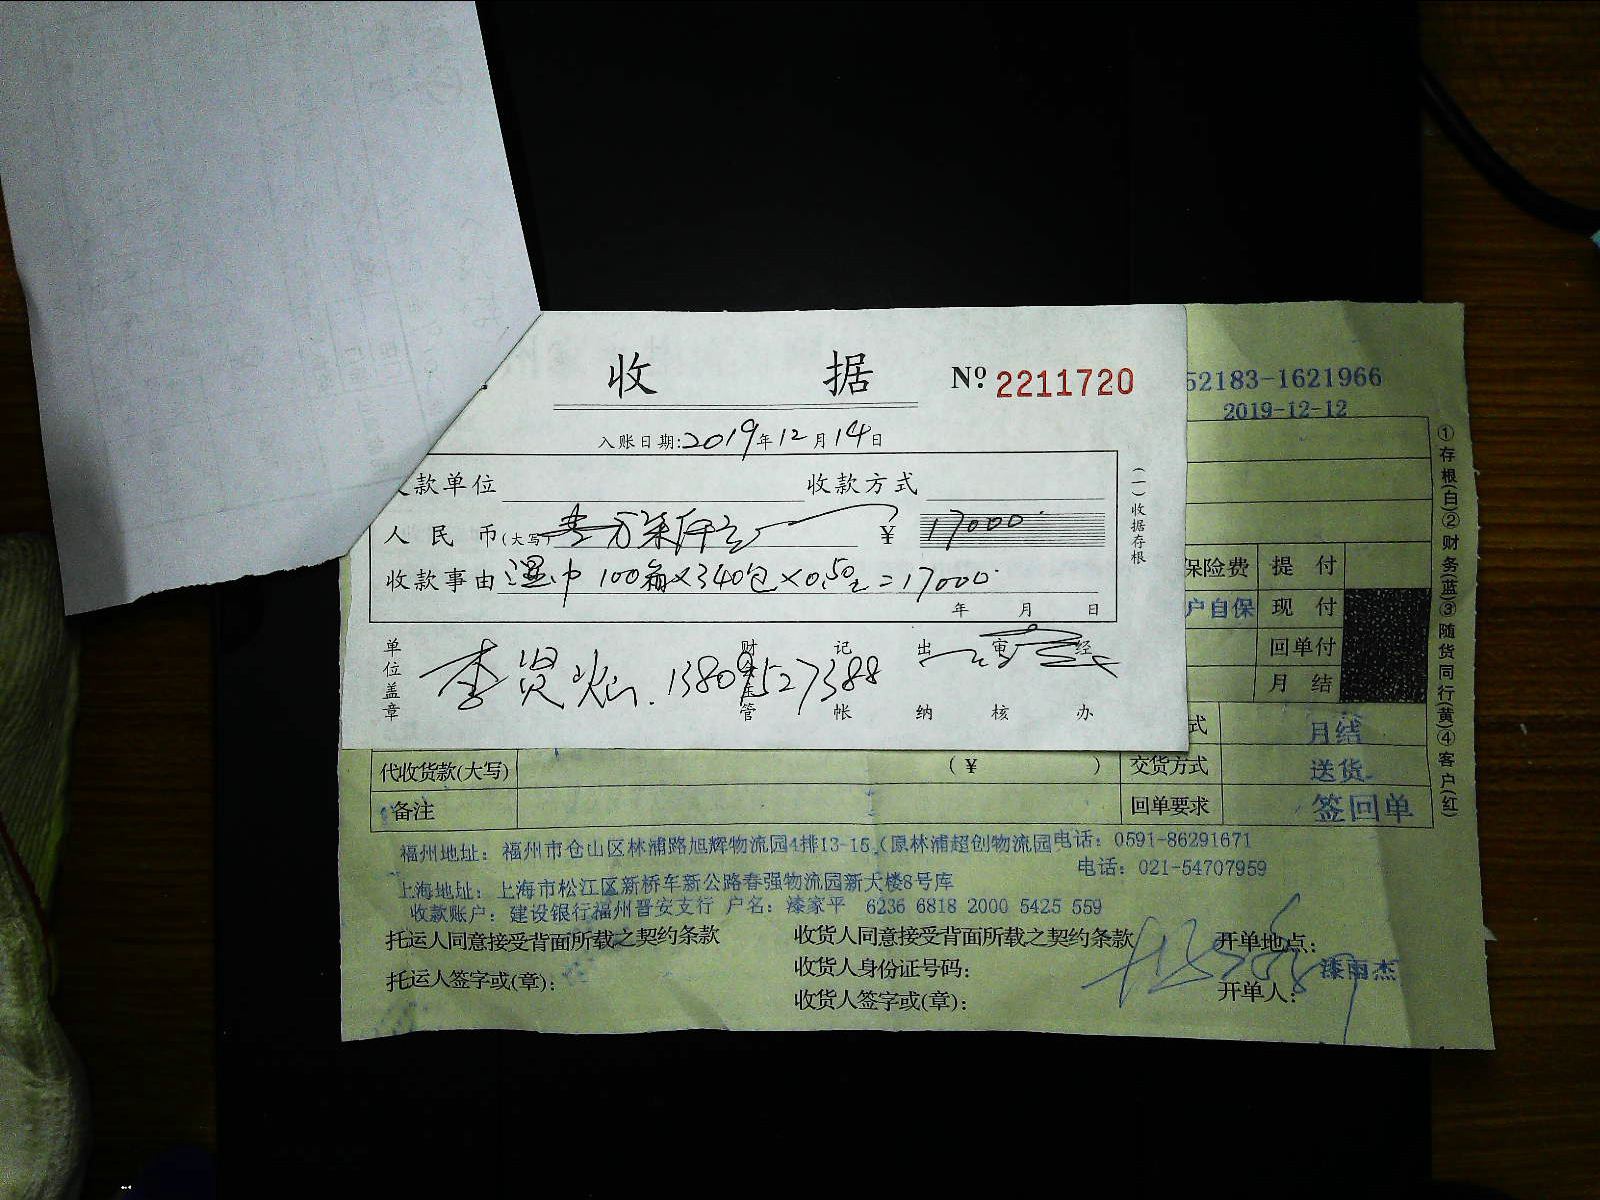 收 据 Nº 2211720
入账日期:2019年12月14日
款单位 收款方式
人民币(大写)壹万柒仟元 ¥ 17000.
收款事由 湿巾 100箱×340包×0.50元=17000.
年 月 日
(一)收据存根
单位盖章 财会主管 记帐 出纳 审核 经办
李贤 13809527388
52183-1621966
2019-12-12
保险费 提 付
户自保 现 付
回单付
月 结
式 月结
代收货款(大写) (¥ ) 交货方式 送货
备注 回单要求 签回单
①存根(白)②财务(蓝)③随货同行(黄)④客户(红)
福州地址: 福州市仓山区林浦路旭辉物流园4排13-15,(原林浦超创物流园 电话: 0591-86291671
电话: 021-54707959
上海地址: 上海市松江区新桥车新公路春强物流园新大楼8号库
收款账户: 建设银行福州晋安支行 户名: 漆家平 6236 6818 2000 5425 559
托运人同意接受背面所载之契约条款 收货人同意接受背面所载之契约条款 开单地点:
收货人身份证号码: 漆雨杰
托运人签字或(章): 开单人:
收货人签字或(章):